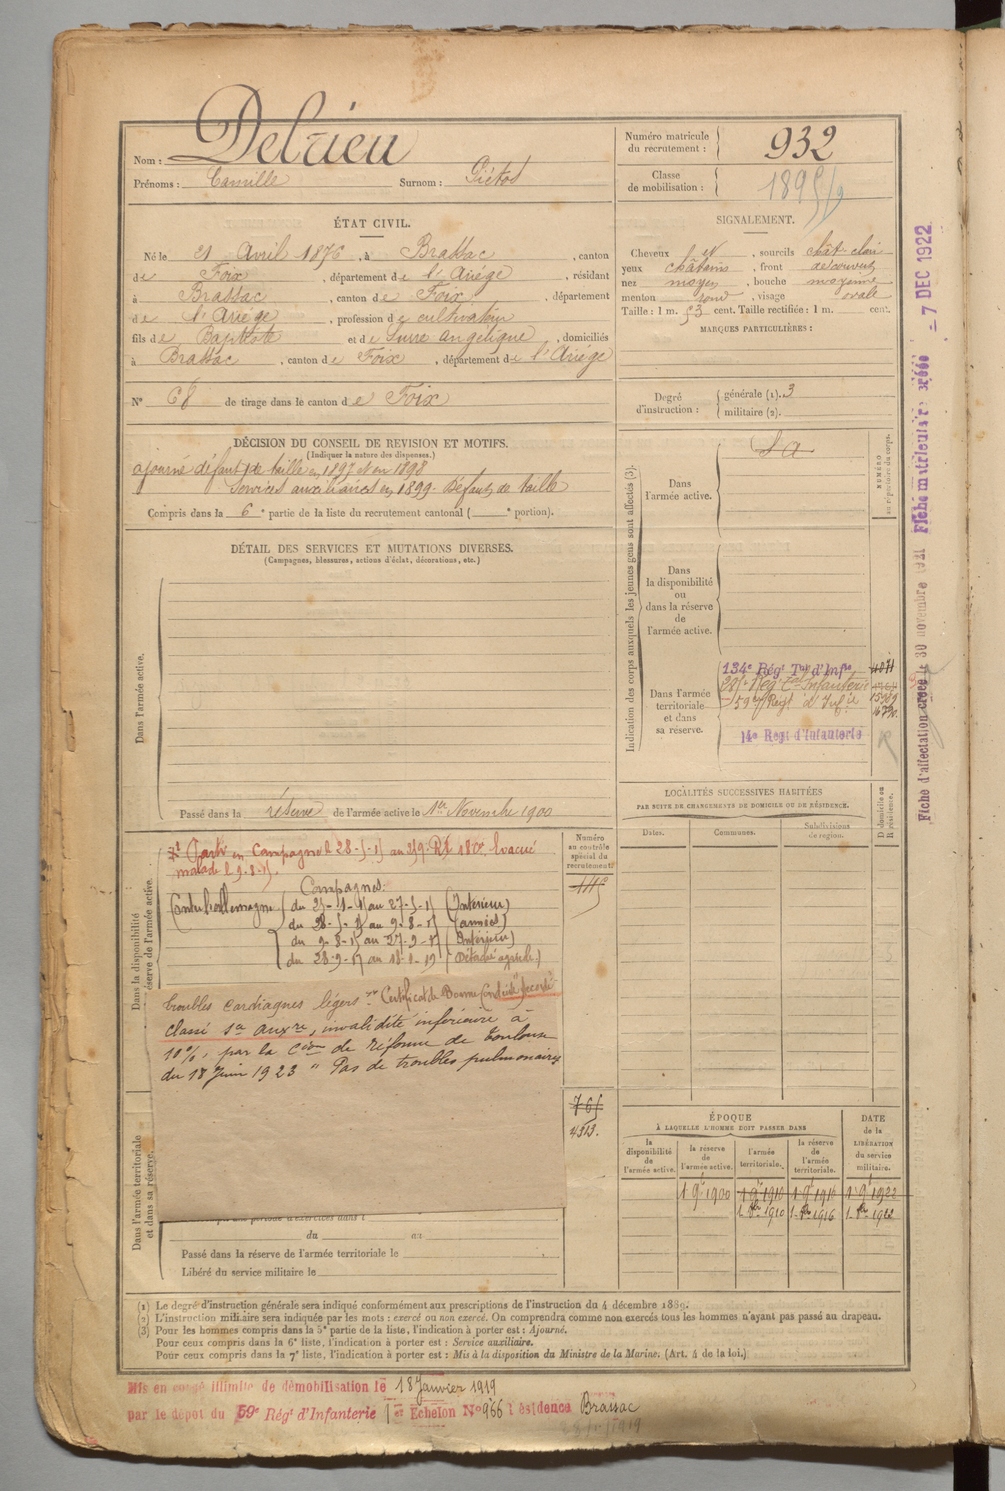 Nom : Delrieu
Prénoms : Camille Surnom :
Numéro matricule du recrutement : 932
Classe de mobilisation : 1895
ÉTAT CIVIL.
Né le 21 Avril 1876, à Brassac, canton
de Foix, département de l'Ariége, résidant
à Brassac, canton de Foix, département
de l'Ariége, profession de cultivateur
fils de Baptiste et de angélique, domiciliés
à Brassac, canton de Foix, département de l'Ariége
N° 68 de tirage dans le canton de Foix
SIGNALEMENT.
Cheveux, sourcils chât. clair
yeux châtains, front découvert
nez moyen, bouche moyenne
menton rond, visage ovale
Taille : 1 m. 53 cent. Taille rectifiée : 1 m. cent.
MARQUES PARTICULIÈRES :
Degré d'instruction : générale (1). 3
militaire (2).
DÉCISION DU CONSEIL DE REVISION ET MOTIFS.
(Indiquer la nature des dispenses.)
ajourné défaut de taille en 1897 et en 1898
Services auxiliaires en 1899. Défaut de taille
Compris dans la 6e partie de la liste du recrutement cantonal ( e portion).
DÉTAIL DES SERVICES ET MUTATIONS DIVERSES.
(Campagnes, blessures, actions d'éclat, décorations, etc.)
Dans l'armée active.
Passé dans la réserve de l'armée active le 1er Novembre 1900
Indication des corps auxquels les jeunes gens sont affectés (3).
NUMÉRO au répertoire du corps.
Dans l'armée active.
S a
Dans la disponibilité ou dans la réserve de l'armée active.
Dans l'armée territoriale et dans sa réserve.
134e Régt Tal d'Infie
59e Régt d'Infie
14e Regt d'Infanterie
LOCALITÉS SUCCESSIVES HABITÉES
PAR SUITE DE CHANGEMENTS DE DOMICILE OU DE RÉSIDENCE.
Dates. Communes. Subdivisions de région. D domicile ou R résidence.
Dans la disponibilité réserve de l'armée active.
Numéro au contrôle spécial du recrutement
Parti en Campagne le 28-5-15 au Evacué
malade le 9-8-15.
Campagnes:
Contre l'allemagne du au 27-5-15 (Intérieur)
du 28-5-15 au 9-8-15 (armées)
du 9-8-15 au 27-9-17 (Intérieur)
du 28-9-17 au 18-1-19 (Détaché agricole.)
troubles cardiaques légers Certificat de Bonne Conduite accordé
classé Sce auxre, invalidité inférieure à
10%, par la Cion de réforme de Toulouse
du 18 Juin 1923 " Pas de troubles pulmonaires
4313.
Dans l'armée territoriale et dans sa réserve.
du au
Passé dans la réserve de l'armée territoriale le
Libéré du service militaire le
ÉPOQUE
A LAQUELLE L'HOMME DOIT PASSER DANS
la disponibilité de l'armée active. la réserve de l'armée active. l'armée territoriale. la réserve de l'armée territoriale.
DATE de la LIBÉRATION du service militaire.
1 9bre 1900 1 9bre 1910 1 9bre 1916 1 9bre 1922
(1) Le degré d'instruction générale sera indiqué conformément aux prescriptions de l'instruction du 4 décembre 1889.
(2) L'instruction militaire sera indiquée par les mots : exercé ou non exercé. On comprendra comme non exercés tous les hommes n'ayant pas passé au drapeau.
(3) Pour les hommes compris dans la 5e partie de la liste, l'indication à porter est : Ajourné.
Pour ceux compris dans la 6e liste, l'indication à porter est : Service auxiliaire.
Pour ceux compris dans la 7e liste, l'indication à porter est : Mis à la disposition du Ministre de la Marine. (Art. 4 de la loi.)
Mis en congé illimité de démobilisation le 18 Janvier 1919
par le dépot du 59e Régt d'Infanterie 1er Echelon N° 966 résidence Brassac
Fiche d'affectation créée le 30 novembre 1921 Fiche matriculaire créée - 7 DEC 1922